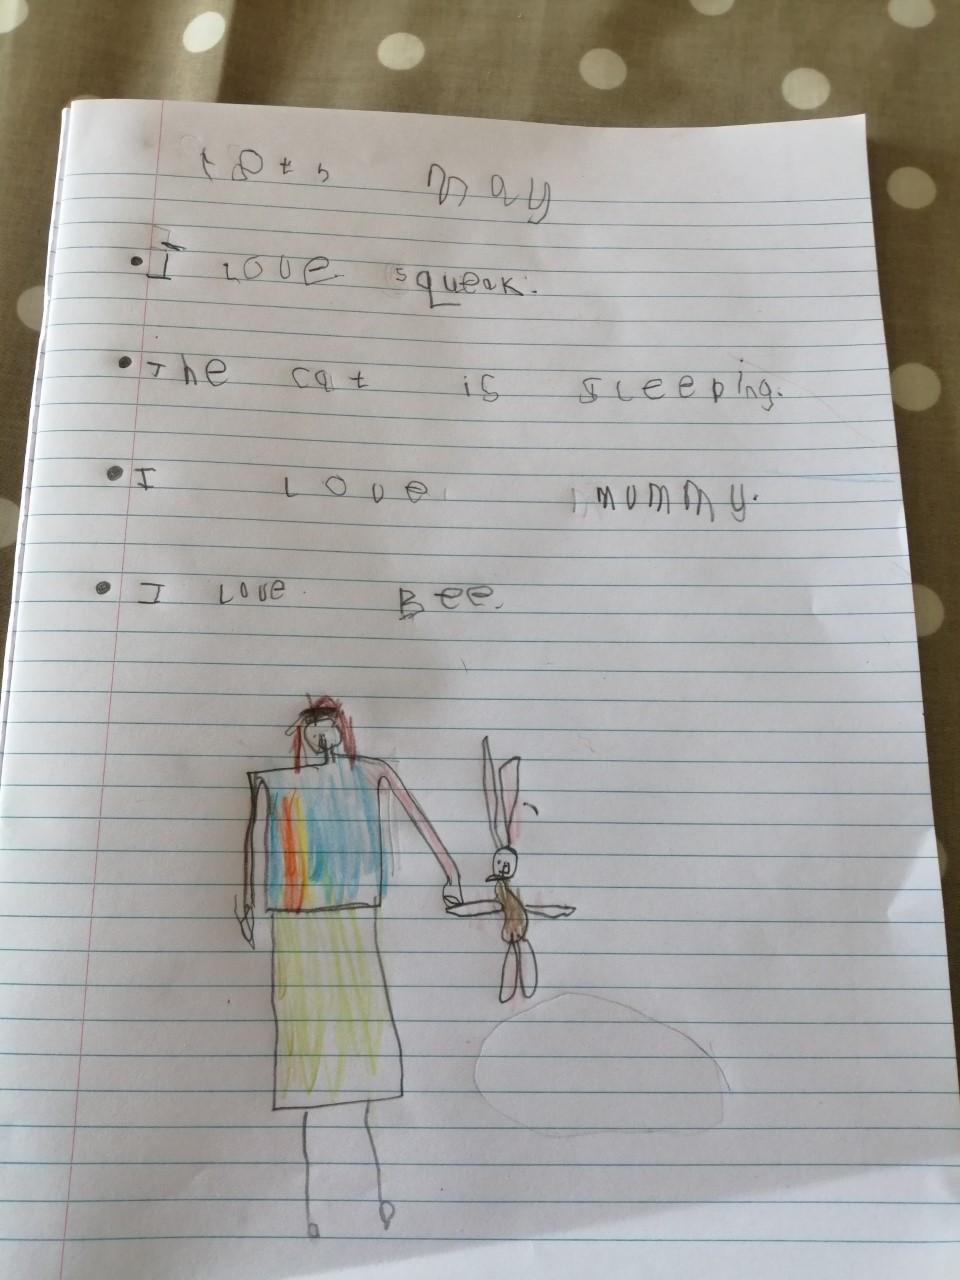 18th May
• I love squeak.
• The cat is sleeping.
• I love mummy.
• I love Bee.